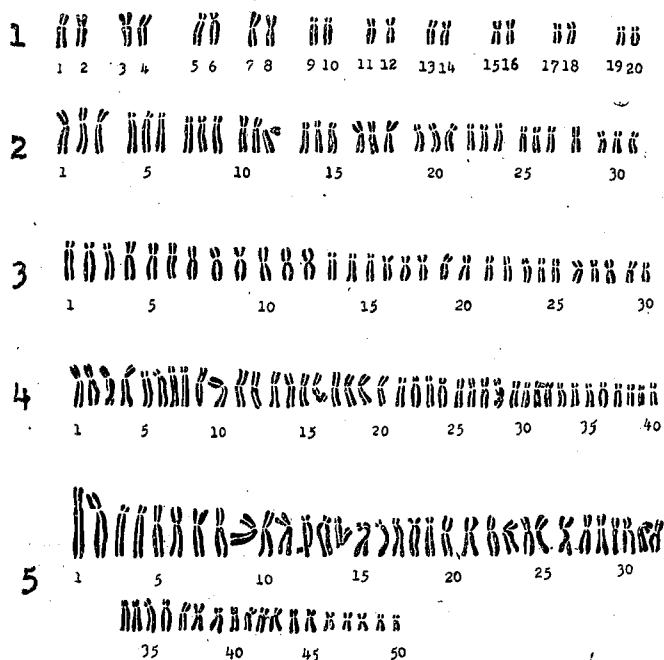 1
1 2 3 4 5 6 7 8 9 10 11 12 13 14 15 16 17 18 19 20
2
1 5 10 15 20 25 30
3
1 5 10 15 20 25 30
4
1 5 10 15 20 25 30 35 40
5
1 5 10 15 20 25 30
35 40 45 50